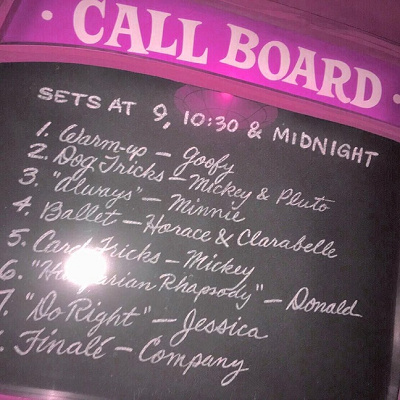 • CALL BOARD •
SETS AT 9, 10:30 & MIDNIGHT
1. Warm-up — Goofy
2. Dog Tricks — Mickey & Pluto
3. "Always" — Minnie
4. Ballet — Horace & Clarabelle
5. Card Tricks — Mickey
6. Rhapsody" — Donald
7. "Do Right" — Jessica
Finalé — Company